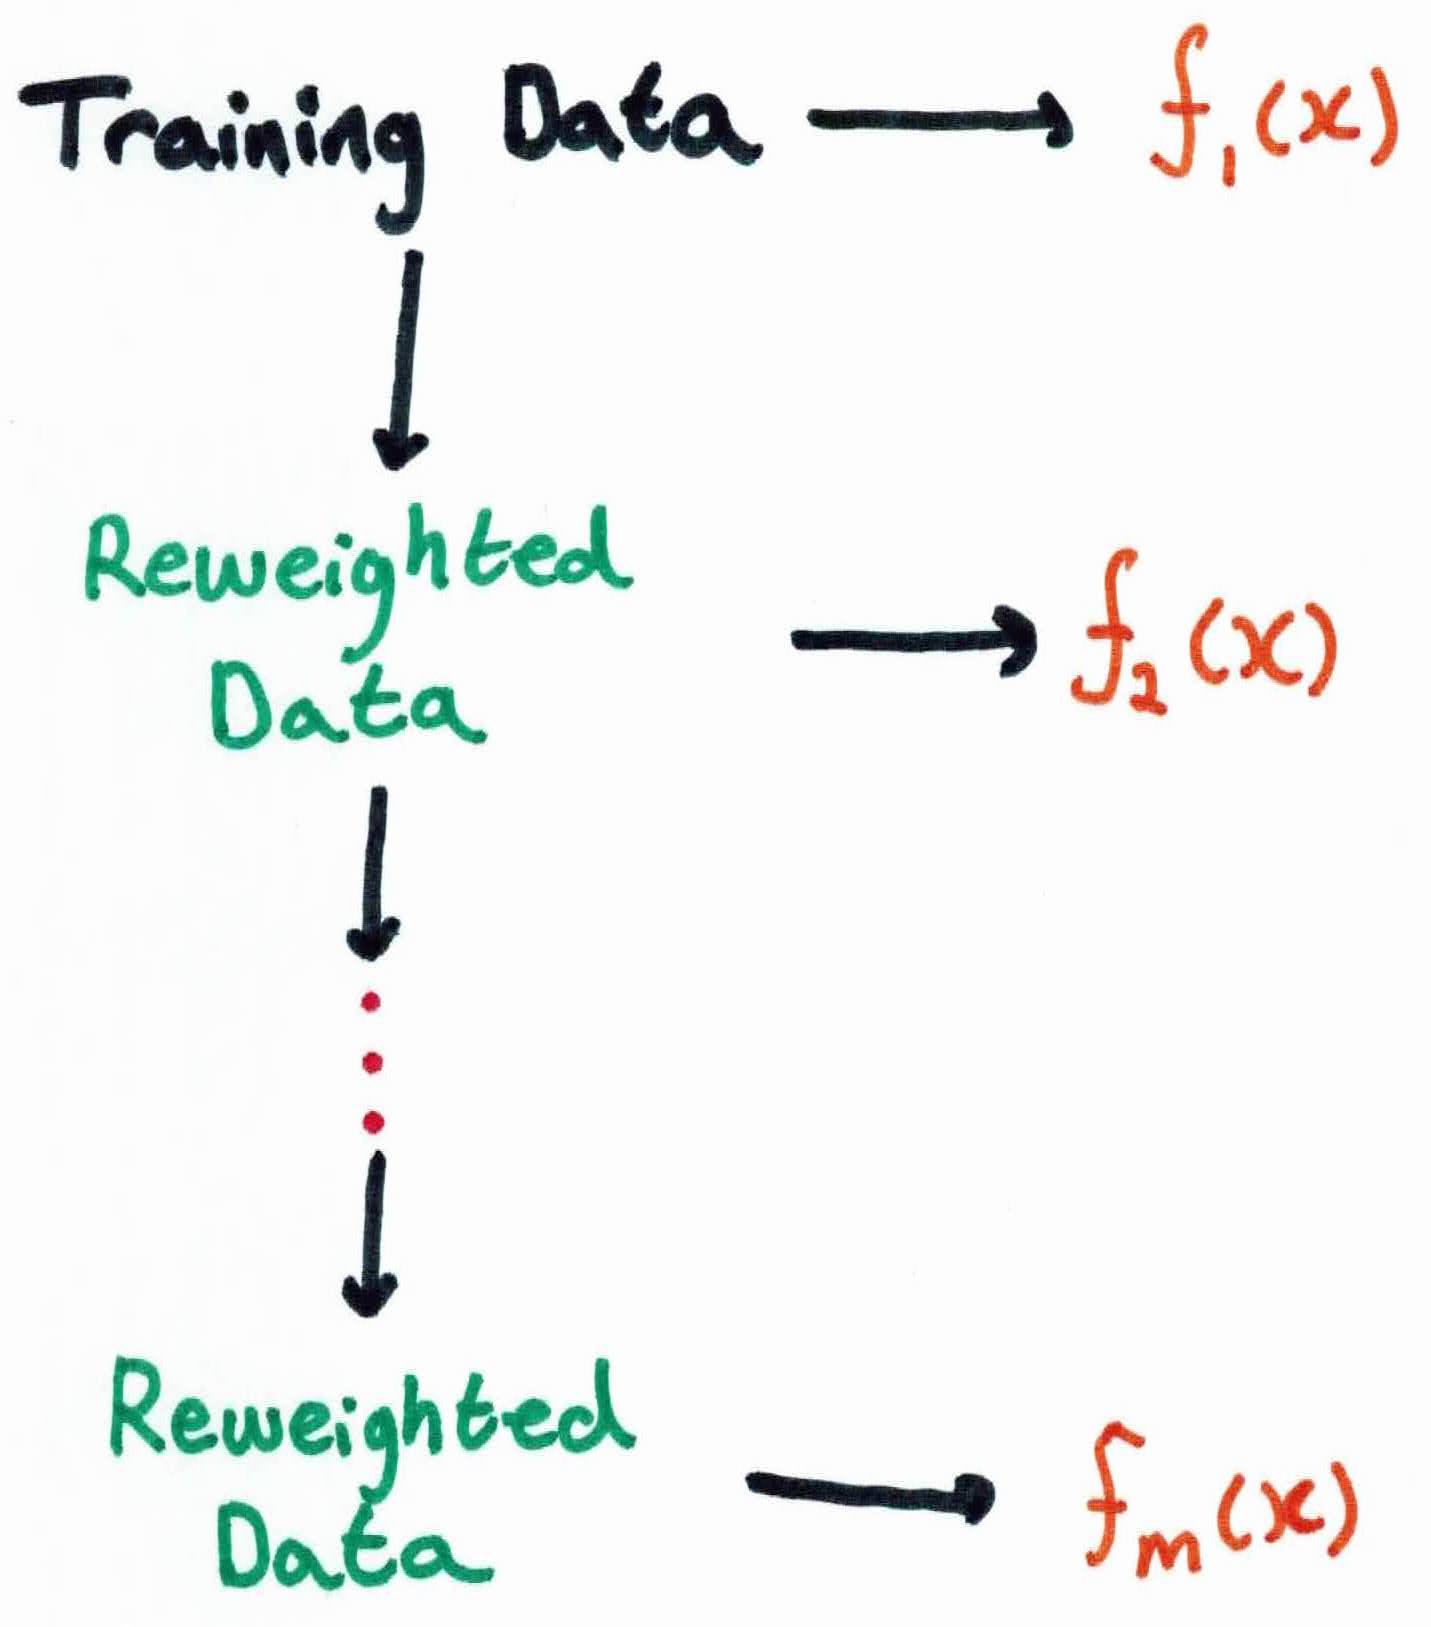 Training Data → f₁(x)
Reweighted
Data → f₂(x)
Reweighted
Data → fₘ(x)